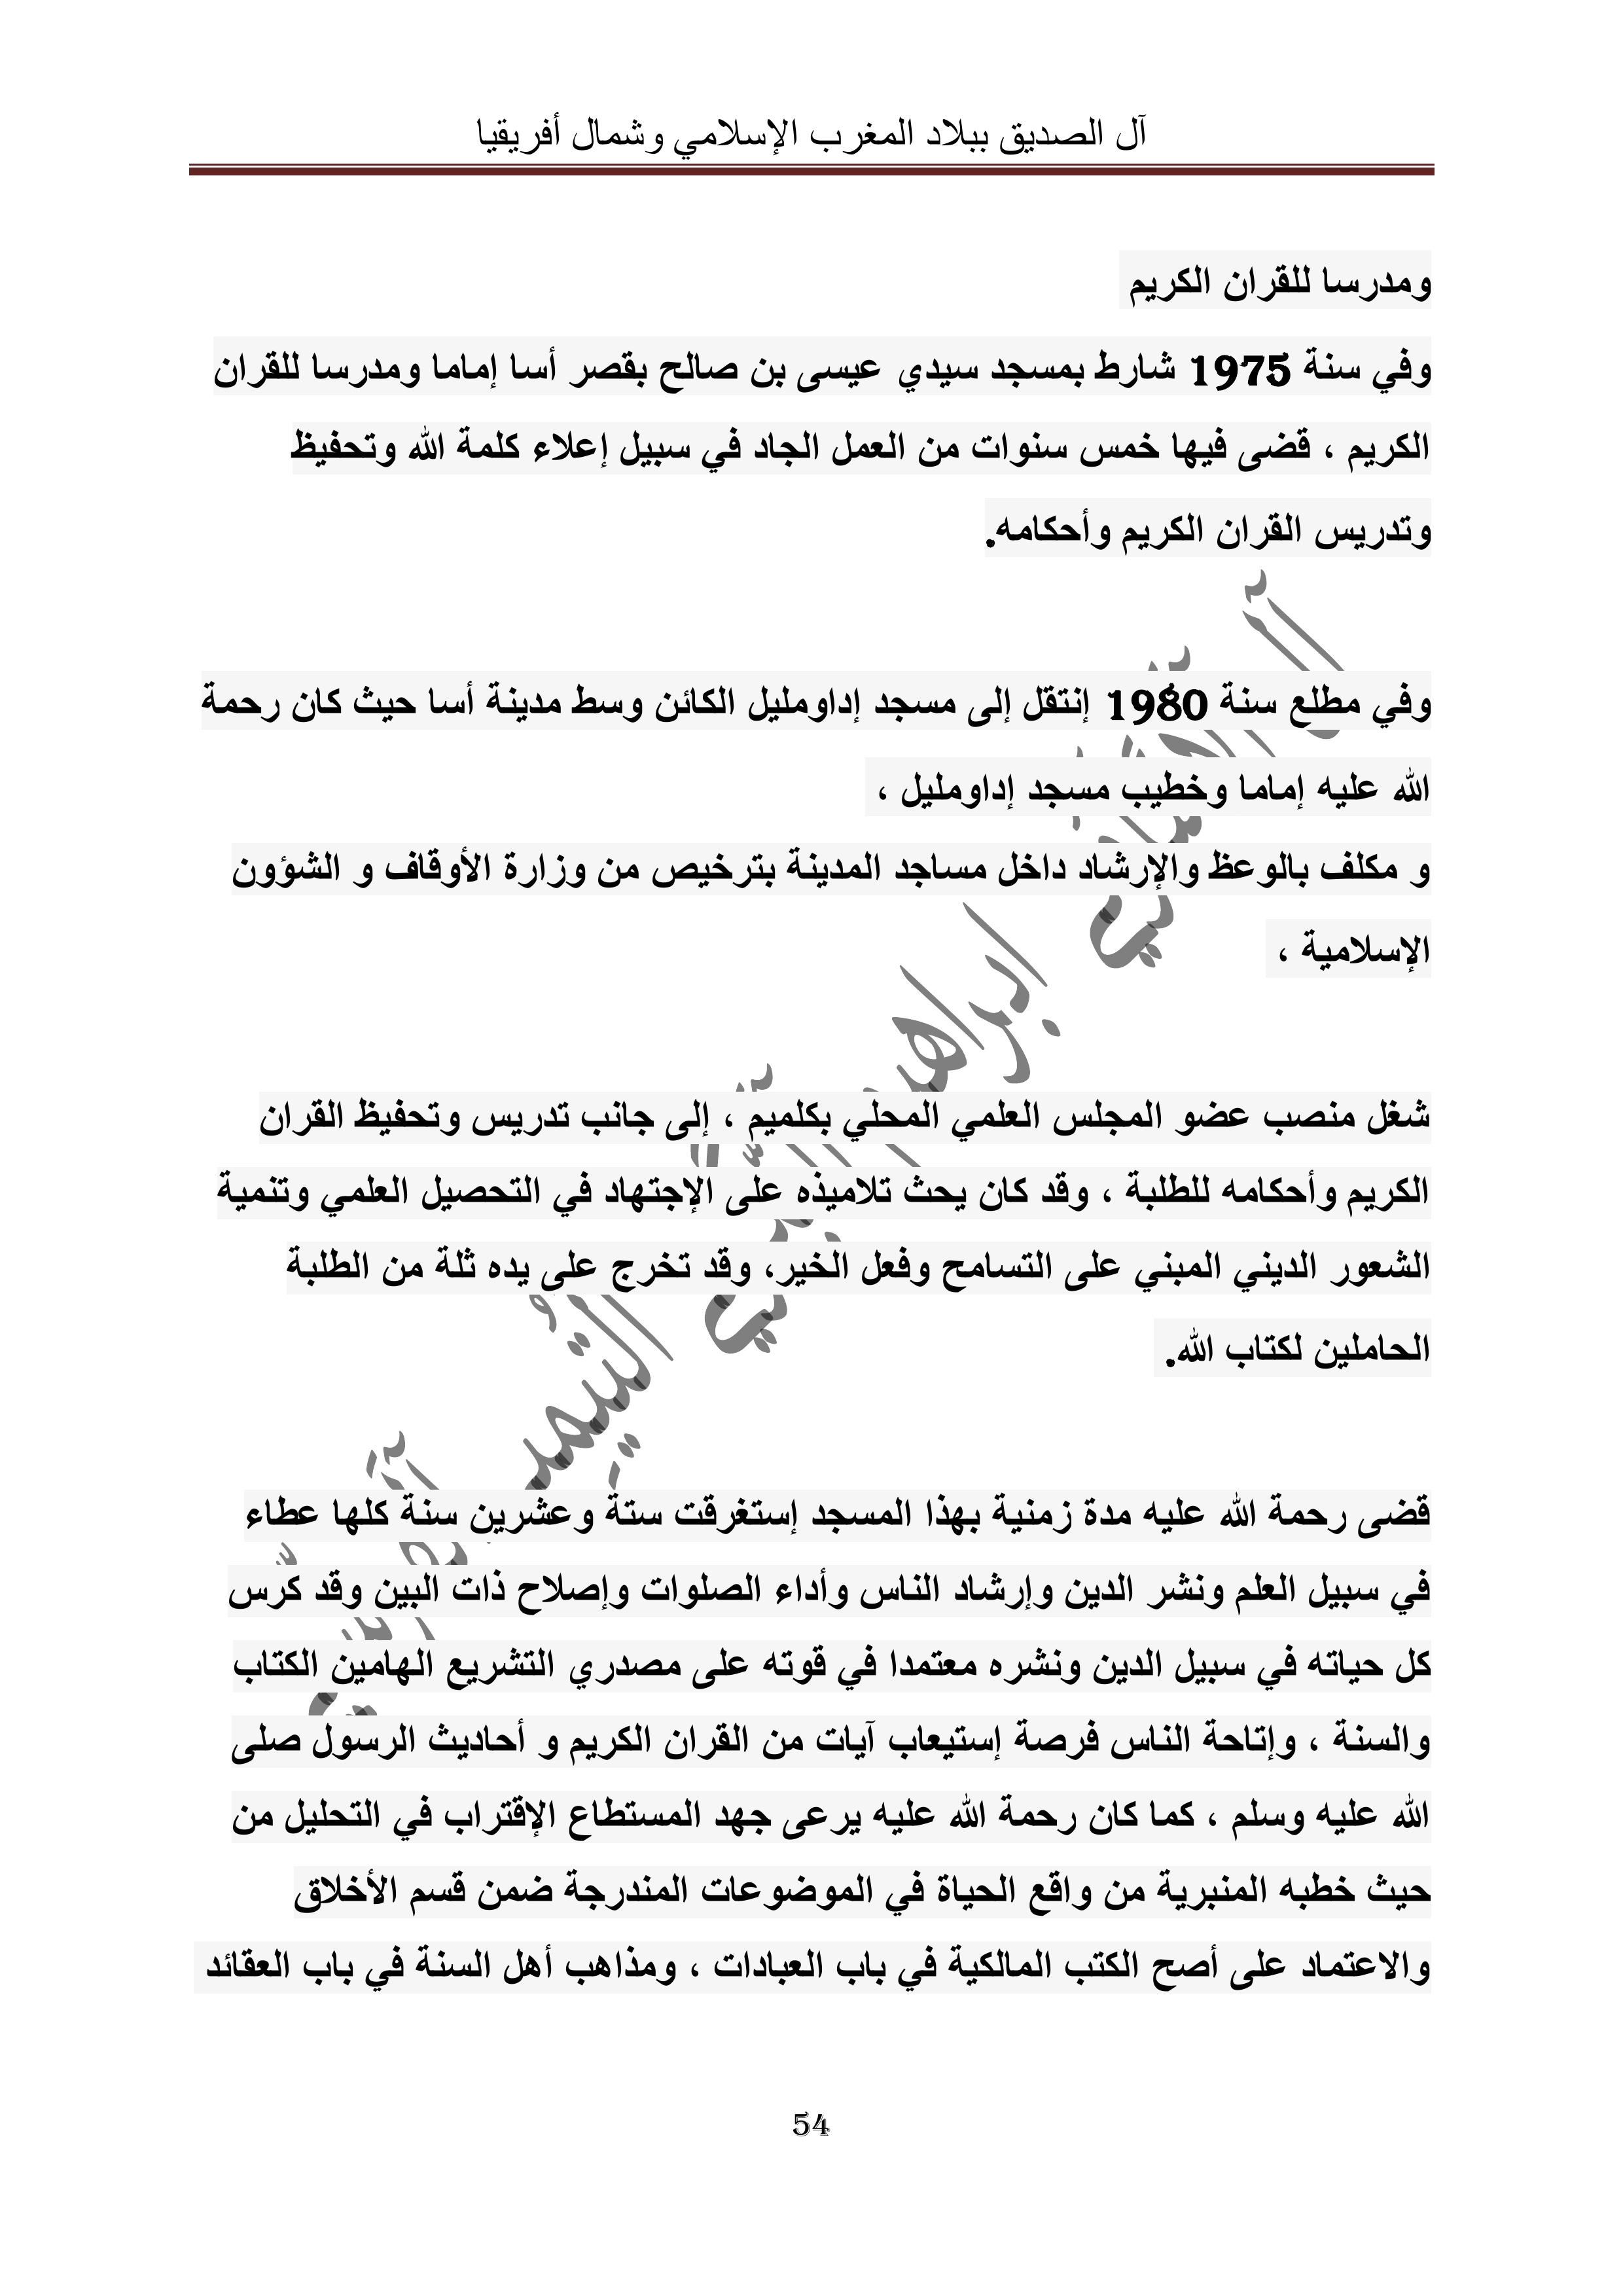 آل الصديق ببلاد المغرب الإسلامي وشمال أفريقيا
ومدرسا للقران الكريم
وفي سنة 1975 شارط بمسجد سيدي عيسى بن صالح بقصر أسا إماما ومدرسا للقران
الكريم ، قضى فيها خمس سنوات من العمل الجاد في سبيل إعلاء كلمة الله وتحفيظ
وتدريس القران الكريم وأحكامه.
وفي مطلع سنة 1980 إنتقل إلى مسجد إداومليل الكائن وسط مدينة أسا حيث كان رحمة
الله عليه إماما وخطيب مسجد إداومليل ،
و مكلف بالوعظ والإرشاد داخل مساجد المدينة بترخيص من وزارة الأوقاف و الشؤون
الإسلامية ،
شغل منصب عضو المجلس العلمي المحلي بكلميم ، إلى جانب تدريس وتحفيظ القران
الكريم وأحكامه للطلبة ، وقد كان يحث تلاميذه على الإجتهاد في التحصيل العلمي وتنمية
الشعور الديني المبني على التسامح وفعل الخير، وقد تخرج على يده ثلة من الطلبة
الحاملين لكتاب الله.
قضى رحمة الله عليه مدة زمنية بهذا المسجد إستغرقت ستة وعشرين سنة كلها عطاء
في سبيل العلم ونشر الدين وإرشاد الناس وأداء الصلوات وإصلاح ذات البين وقد كرس
كل حياته في سبيل الدين ونشره معتمدا في قوته على مصدري التشريع الهامين الكتاب
والسنة ، وإتاحة الناس فرصة إستيعاب آيات من القران الكريم و أحاديث الرسول صلى
الله عليه وسلم ، كما كان رحمة الله عليه يرعى جهد المستطاع الإقتراب في التحليل من
حيث خطبه المنبرية من واقع الحياة في الموضوعات المندرجة ضمن قسم الأخلاق
والاعتماد على أصح الكتب المالكية في باب العبادات ، ومذاهب أهل السنة في باب العقائد
54